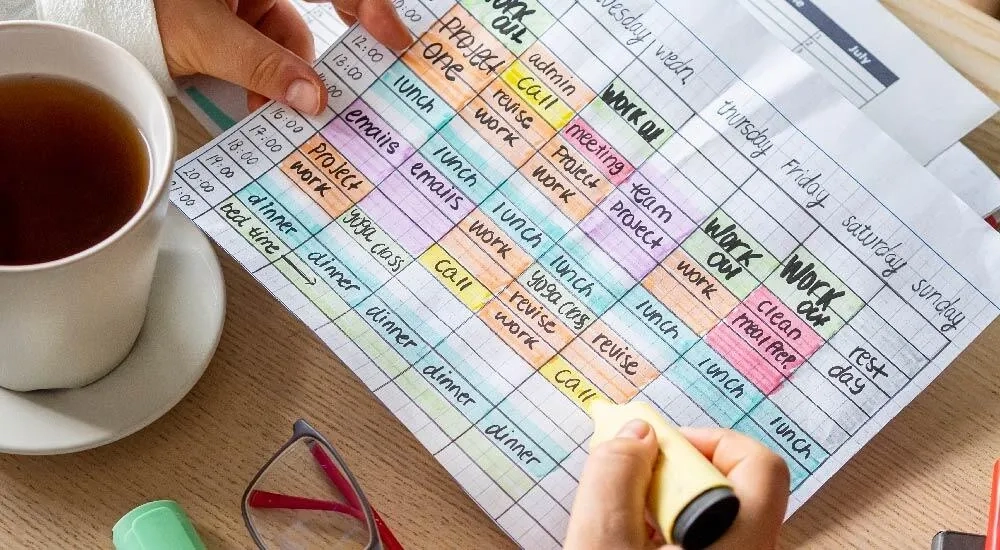 uesday
wedn.
thursday
Friday
saturday
sunday
July
12:00
13:00
16:00
17:00
18:00
19:00
20:00
21:00
WORK
OUT
PROJECT
ONE
lunch
emails
project
work
dinner
bed time
admin
call
revise
work
lunch
emails
yoga class
dinner
WORK OUT
meeting
Project
work
lunch
work
call
dinner
team
project
lunch
yoga
class
revise
work
dinner
WORK
OUT
work
lunch
revise
call
dinner
WORK
OUT
clean
meal prep
lunch
rest
day
lunch